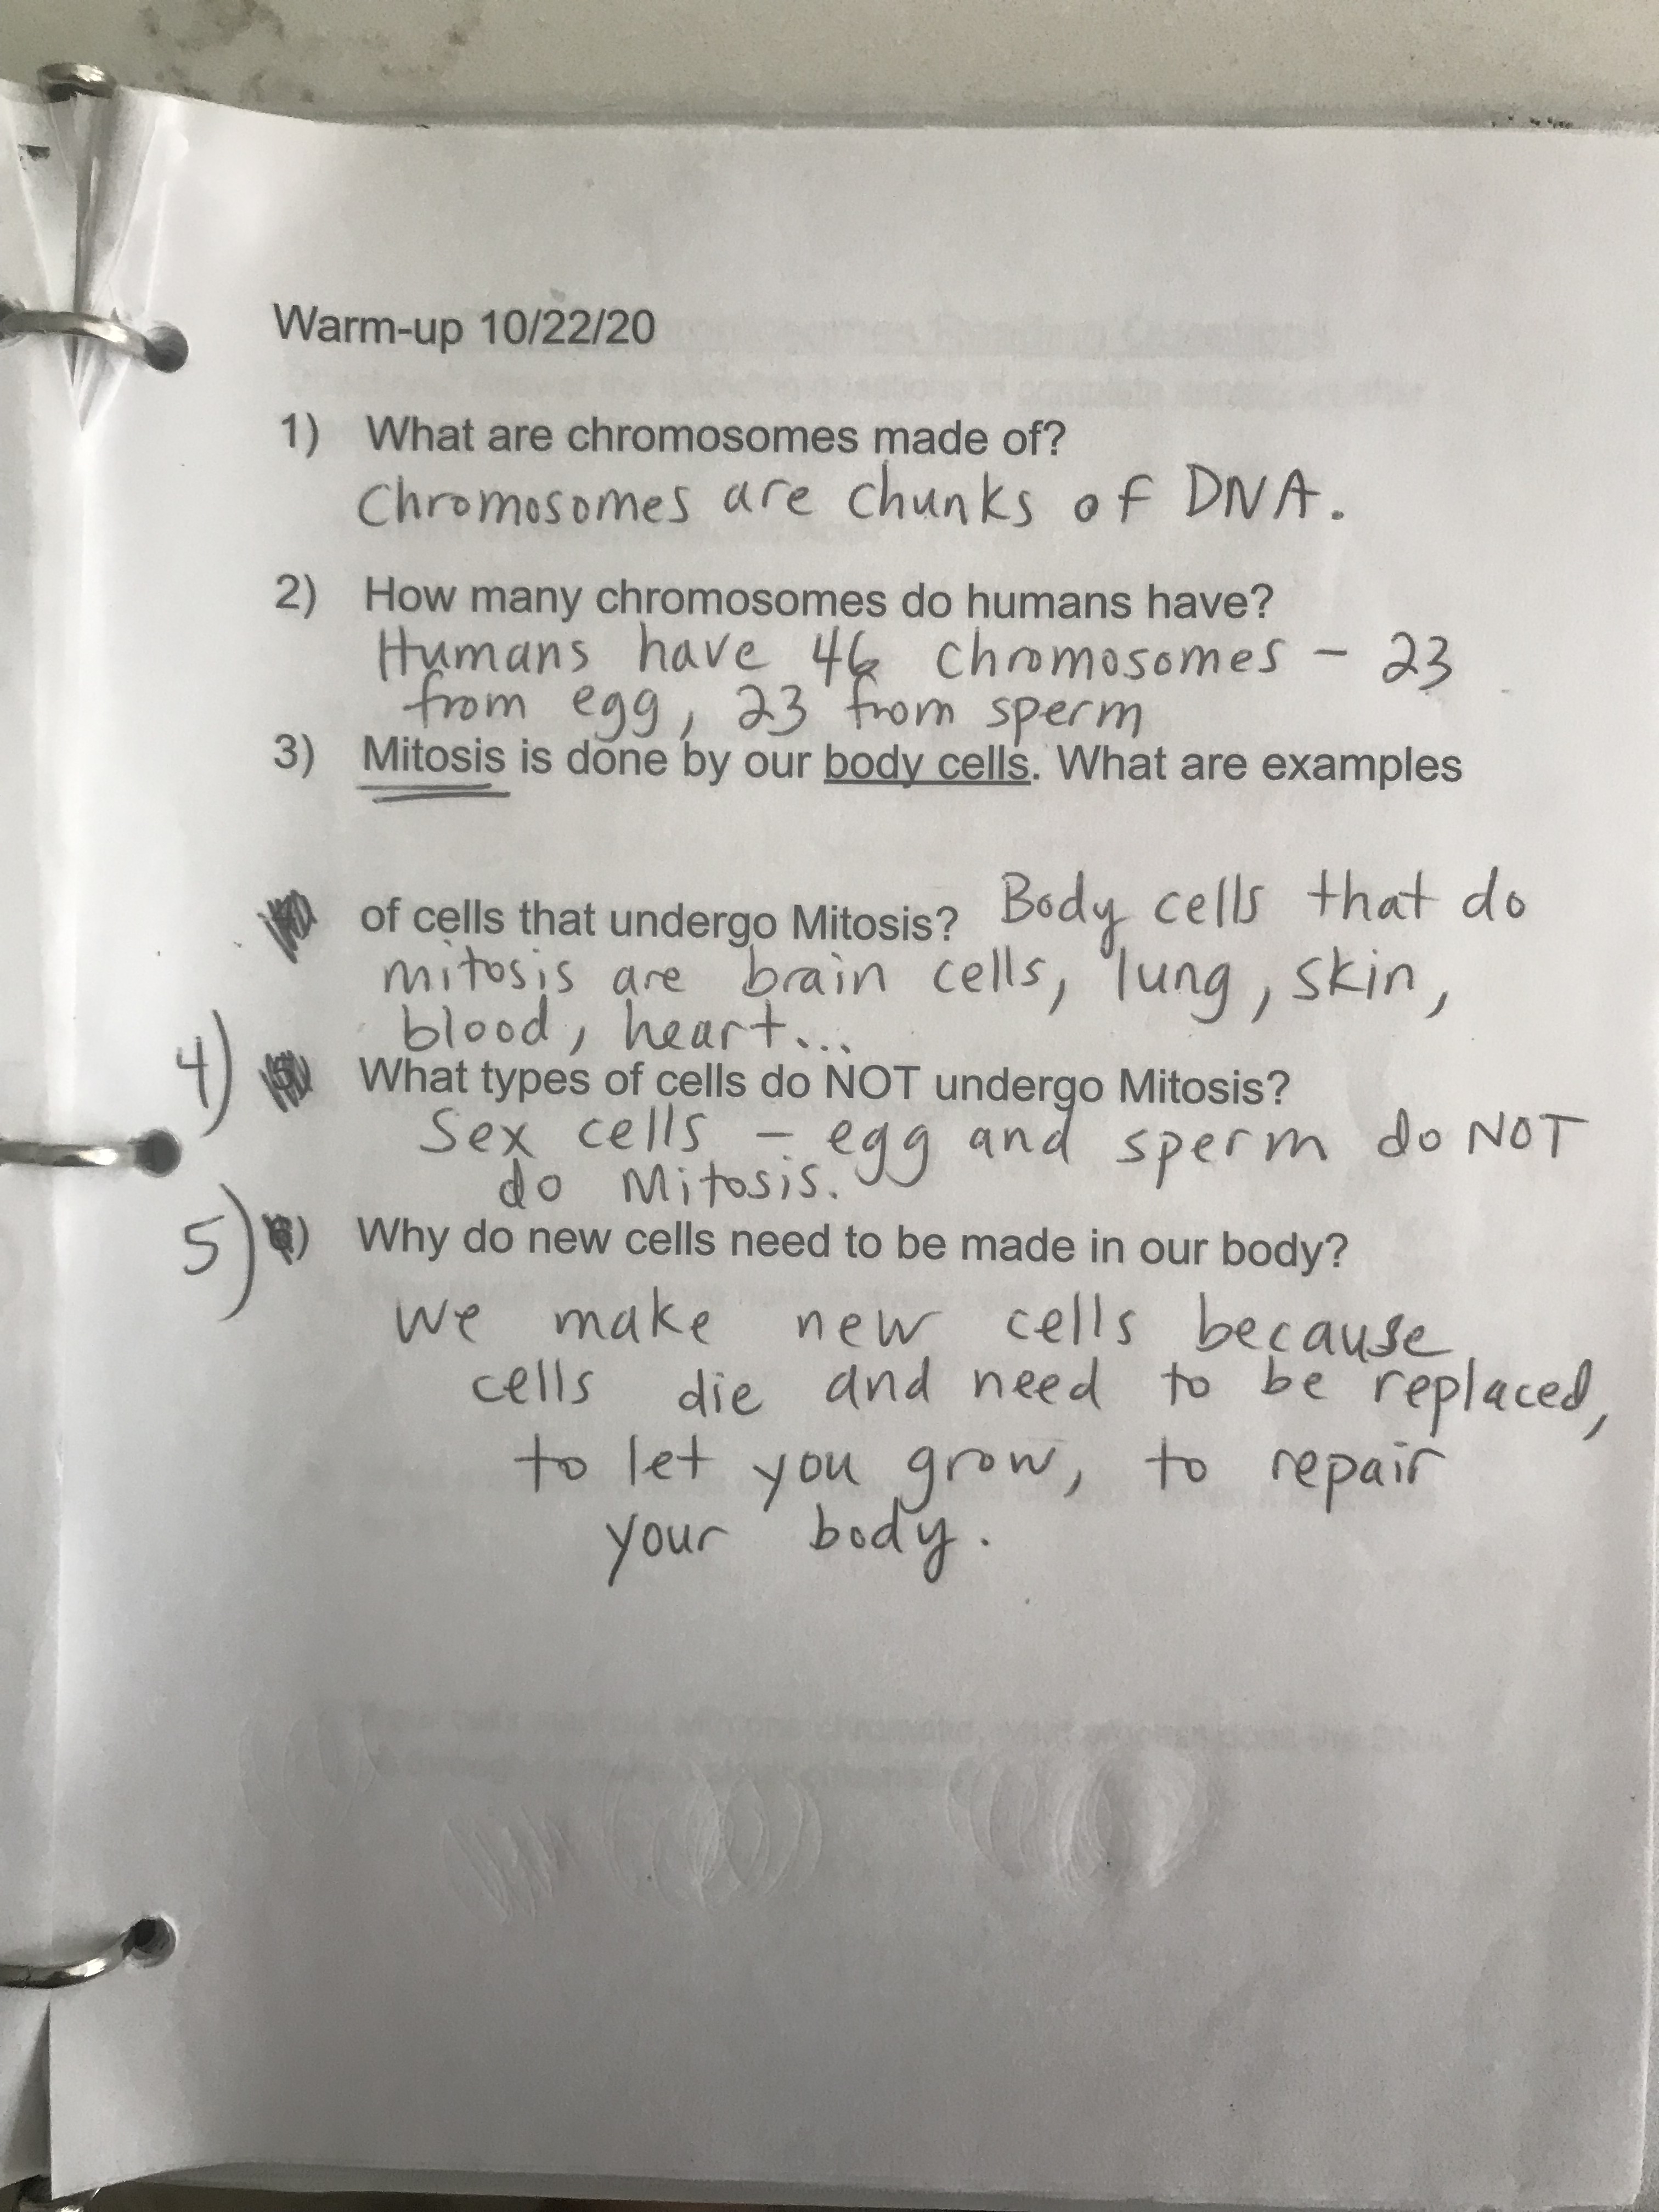 Warm-up 10/22/20
1) What are chromosomes made of?
Chromosomes are chunks of DNA.
2) How many chromosomes do humans have?
Humans have 46 chromosomes - 23
from egg, 23 from sperm
3) Mitosis is done by our body cells. What are examples
of cells that undergo Mitosis? Body cells that do
mitosis are brain cells, lung, skin,
blood, heart...
4) What types of cells do NOT undergo Mitosis?
Sex cells - egg and sperm do NOT
do Mitosis.
5) Why do new cells need to be made in our body?
We make new cells because
cells die and need to be replaced,
to let you grow, to repair
your body.